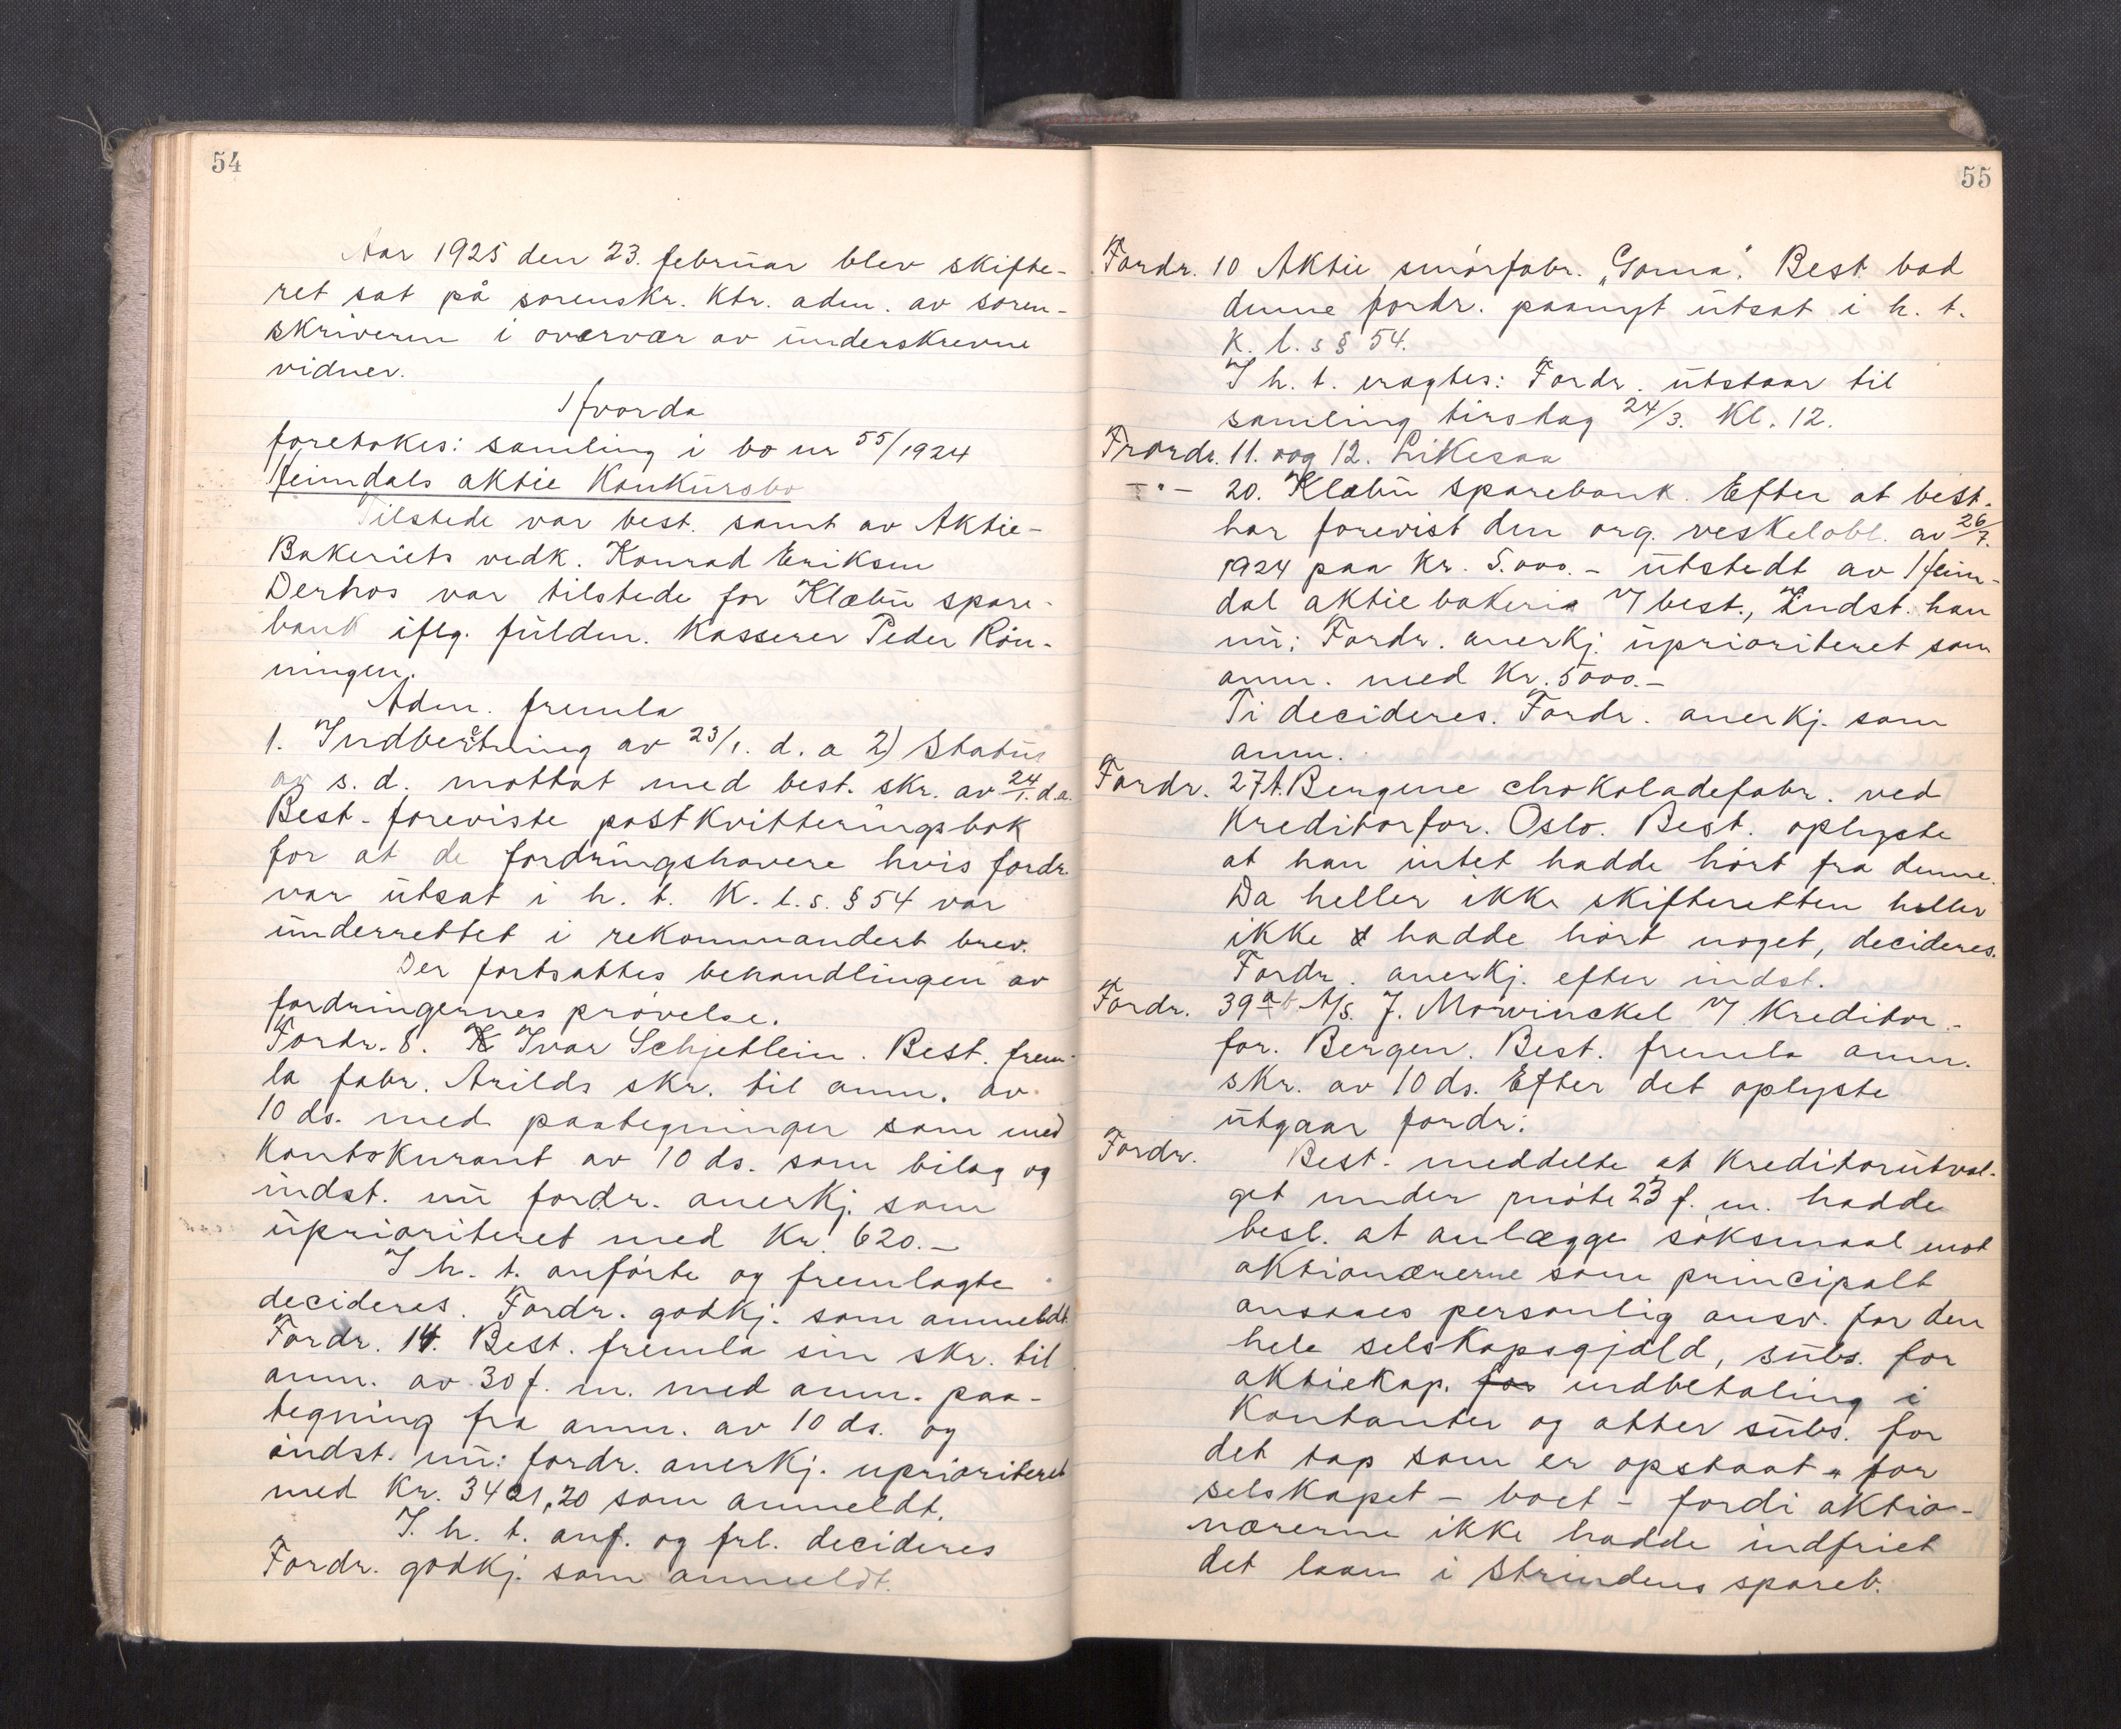 54
Aar 1925 den 23. februar blev skifte-
ret sat på sorenskr. ktr. adm. av soren-
skriveren i overvær av underskrevne
vidner.
Hvorda
foretokes: samling i bo nr 55/1924
Heimdals aktie Konkursbo
Tilstede var best. samt av Aktie-
Bakeriets vedk. Konrad Eriksen
Derhos var tilstede for Klæbu spare-
bank iflg. fuldm. Kasserer Peder Rön-
ningen.
Adm. fremla
1. Indberetning av 23/1. d. a 2) Status
av s. d. mottat med best. skr. av 24/1. d.a.
Best. foreviste postkvitteringsbok
for at de fordringshavere hvis fordr.
var utsat i h. t. K. l. s. § 54 var
underrettet i rekommandert brev.
Der fortsattes behandlingen av
fordringernes prövelse.
Fordr. 8. Ivar Schjetlein. Best. frem-
la fabr. Arilds skr. til anm. av
10 ds. med paategninger som med
Kontokurant av 10 ds. som bilag og
indst. nu fordr. anerkj. som
uprioriteret med Kr. 620.-
I h. t. anförte og fremlagte
decideres. Fordr. godkj. som anmeldt.
Fordr. 14. Best. fremla sin skr. til
anm. av 30 f. m. med anm. paa-
tegning fra anm. av 10 ds. og
indst. nu: fordr. anerkj. uprioriteret
med Kr. 3421,20 som anmeldt.
I. h. t. anf. og frl. decideres
Fordr. godkj. som anmeldt.
55
Fordr. 10 Aktie smörfabr. „Goma". Best. bad
denne fordr. paanyt utsat i h. t.
K. l. s § 54.
I h. t. eragtes: Fordr. utstaar til
samling tirsdag 24/3. Kl. 12.
Frordr. 11. oog 12. Likesaa
-"- 20. Klæbu sparebank. Efter at best.
har forevist den org. veskelobl. av 26/7.
1924 paa Kr. 5.000.- utstedt av Heim-
dal aktiebakeri v/ best., Indst. han
nu: Fordr. anerkj. uprioriteret som
anm. med Kr. 5000.-
Ti decideres. Fordr. anerkj. som
anm.
Fordr. 27 Bergene chokoladefabr. ved
Kreditorfor. Oslo. Best. oplyste
at han intet hadde hört fra denne.
Da heller ikke skifteretten heller
ikke hadde hört noget, decideres.
Fordr. anerkj. efter indst.
Fordr. 39 a A/S. J. Mowinckel v/ Kreditor-
for. Bergen. Best. fremla anm.
skr. av 10 ds. Efter det oplyste
utgaar fordr.
Fordr. Best. meddelte at Kreditorutval-
get under möte 23 f. m. hadde
besl. at anlægge söksmaal mot
aktionærerne som principalt
ansaaes personlig ansv. for den
hele selskapsgjæld, subs. for
aktiekap. for indbetaling i
Kontanter og atter subs. for
det tap som er opstaat for
selskapet - boet - fordi aktio-
nærerne ikke hadde indfriet
det laan i Strindens spareb.